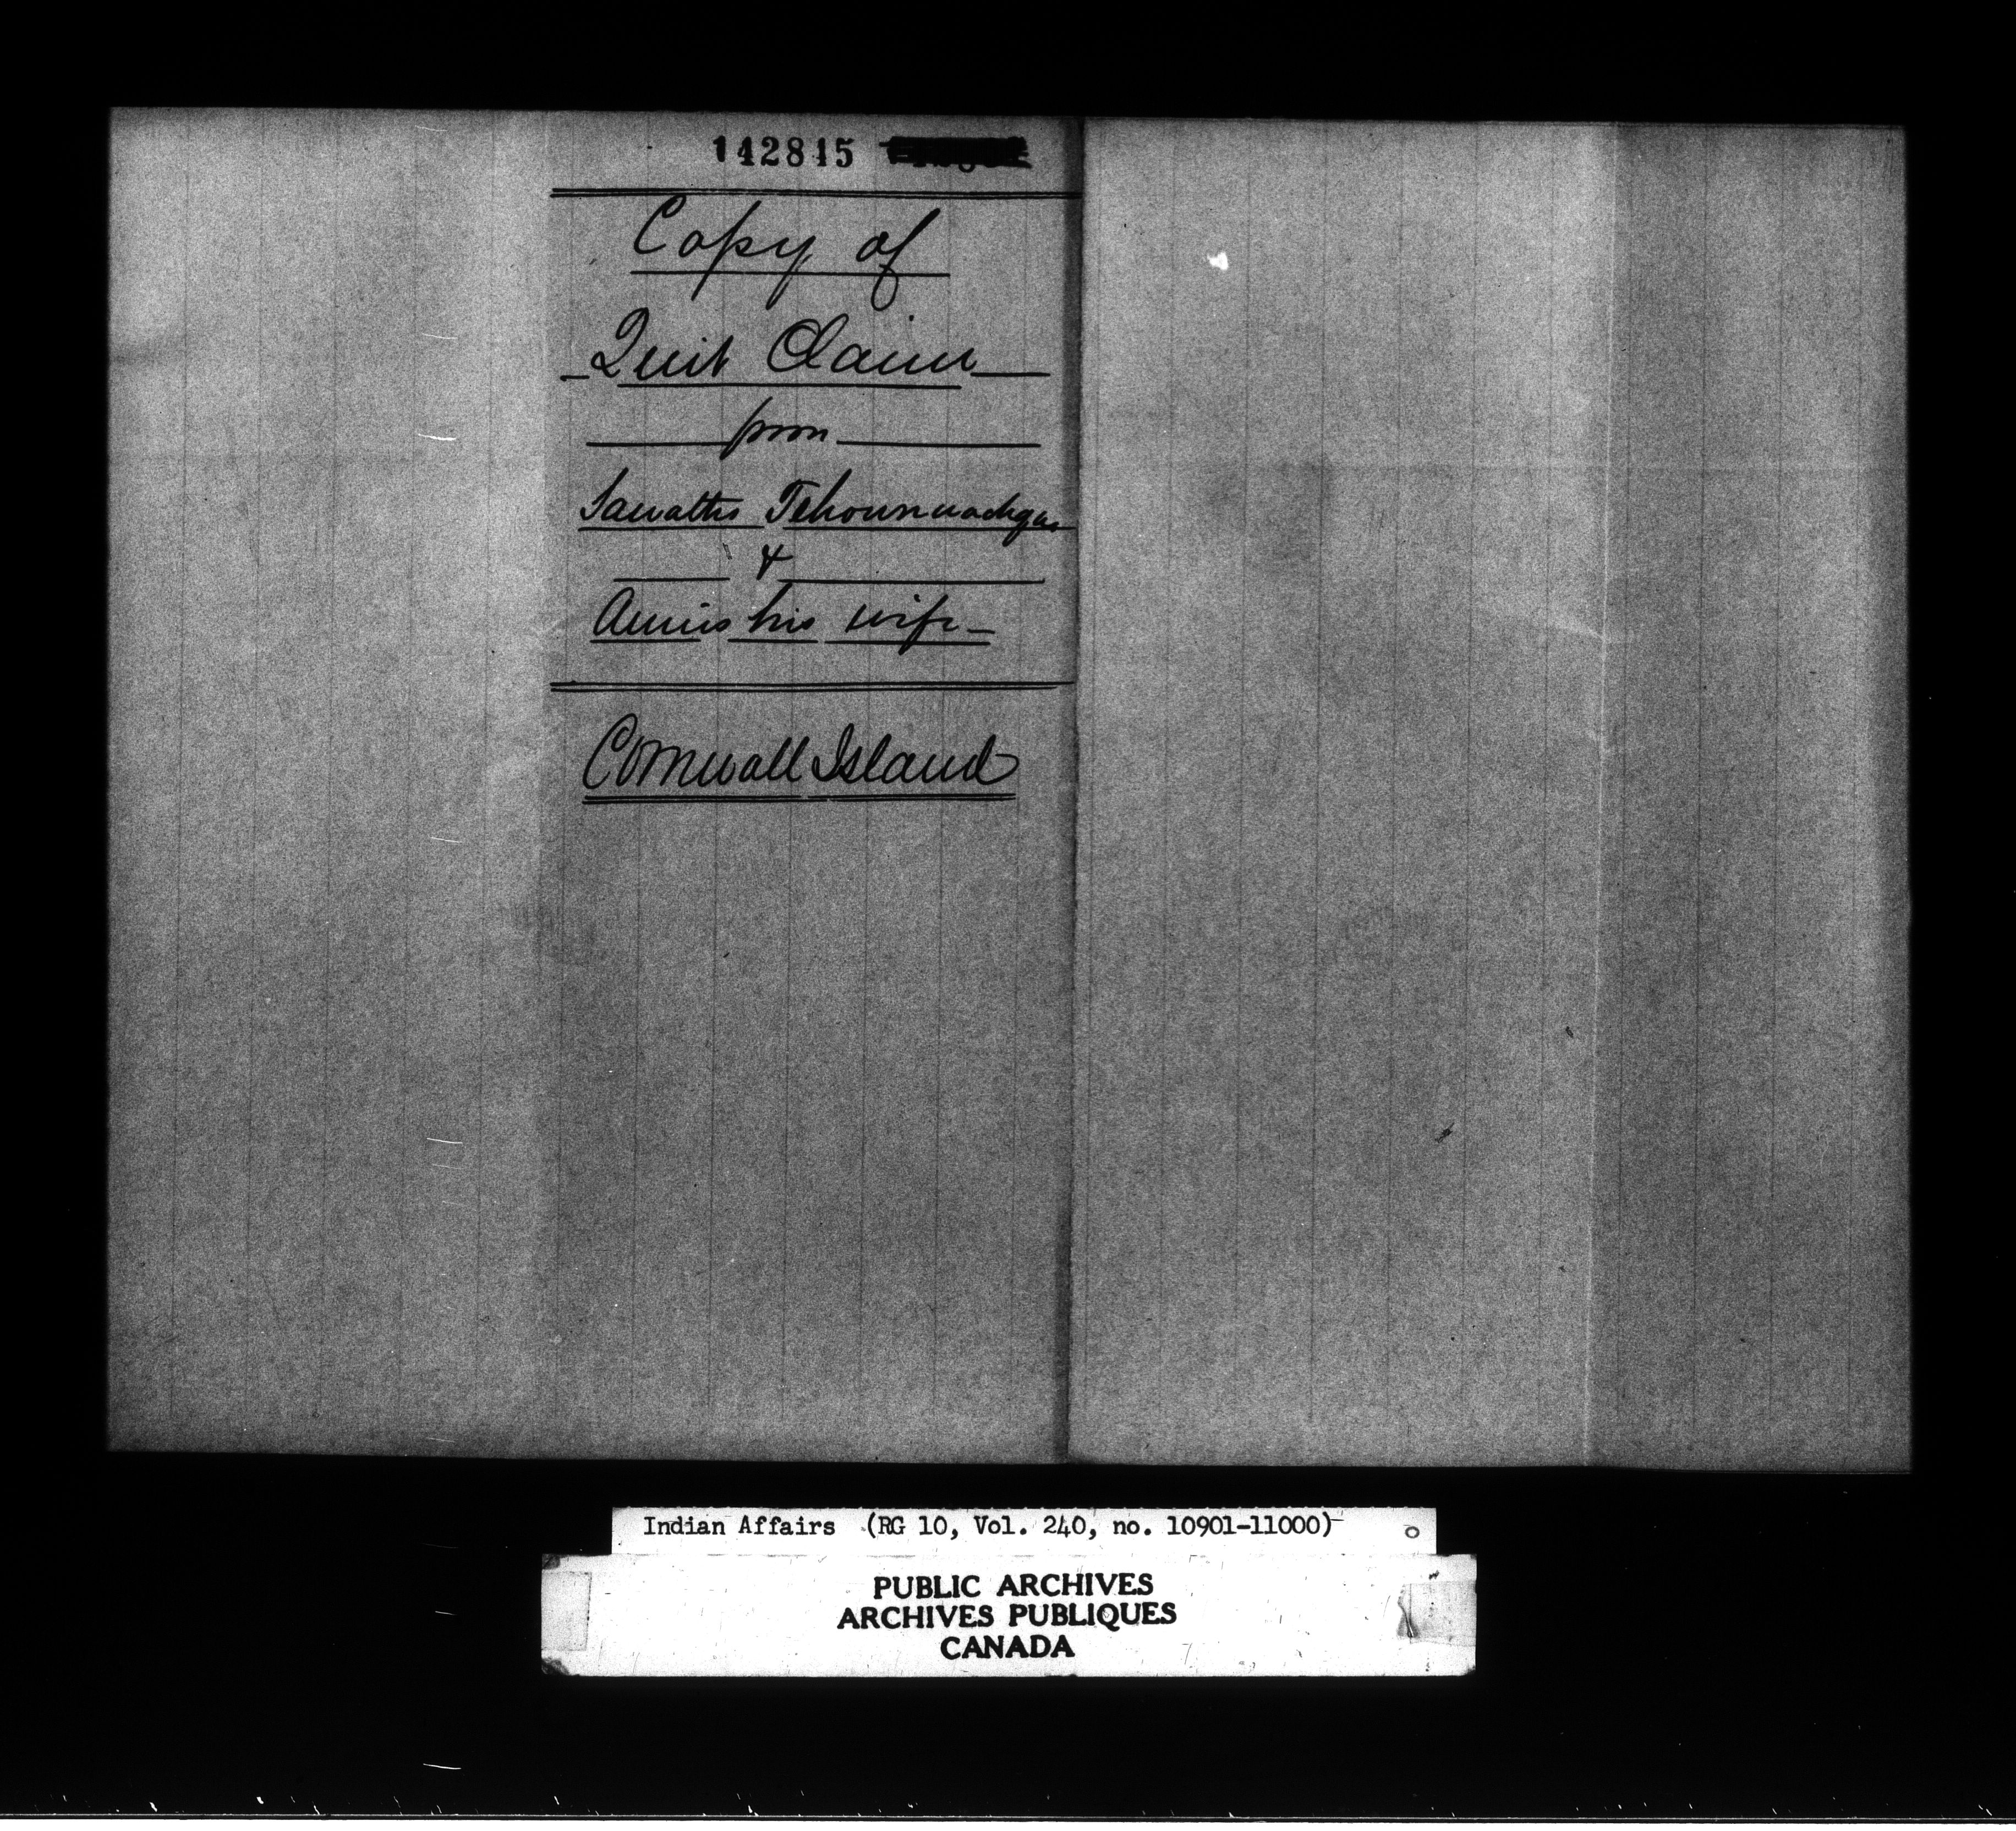 142815
Copy of
Quit Claim
from
Sawatis
&
his wife
Cornwall Island
Indian Affairs (RG 10, Vol. 240, no. 10901-11000)
PUBLIC ARCHIVES
ARCHIVES PUBLIQUES
CANADA